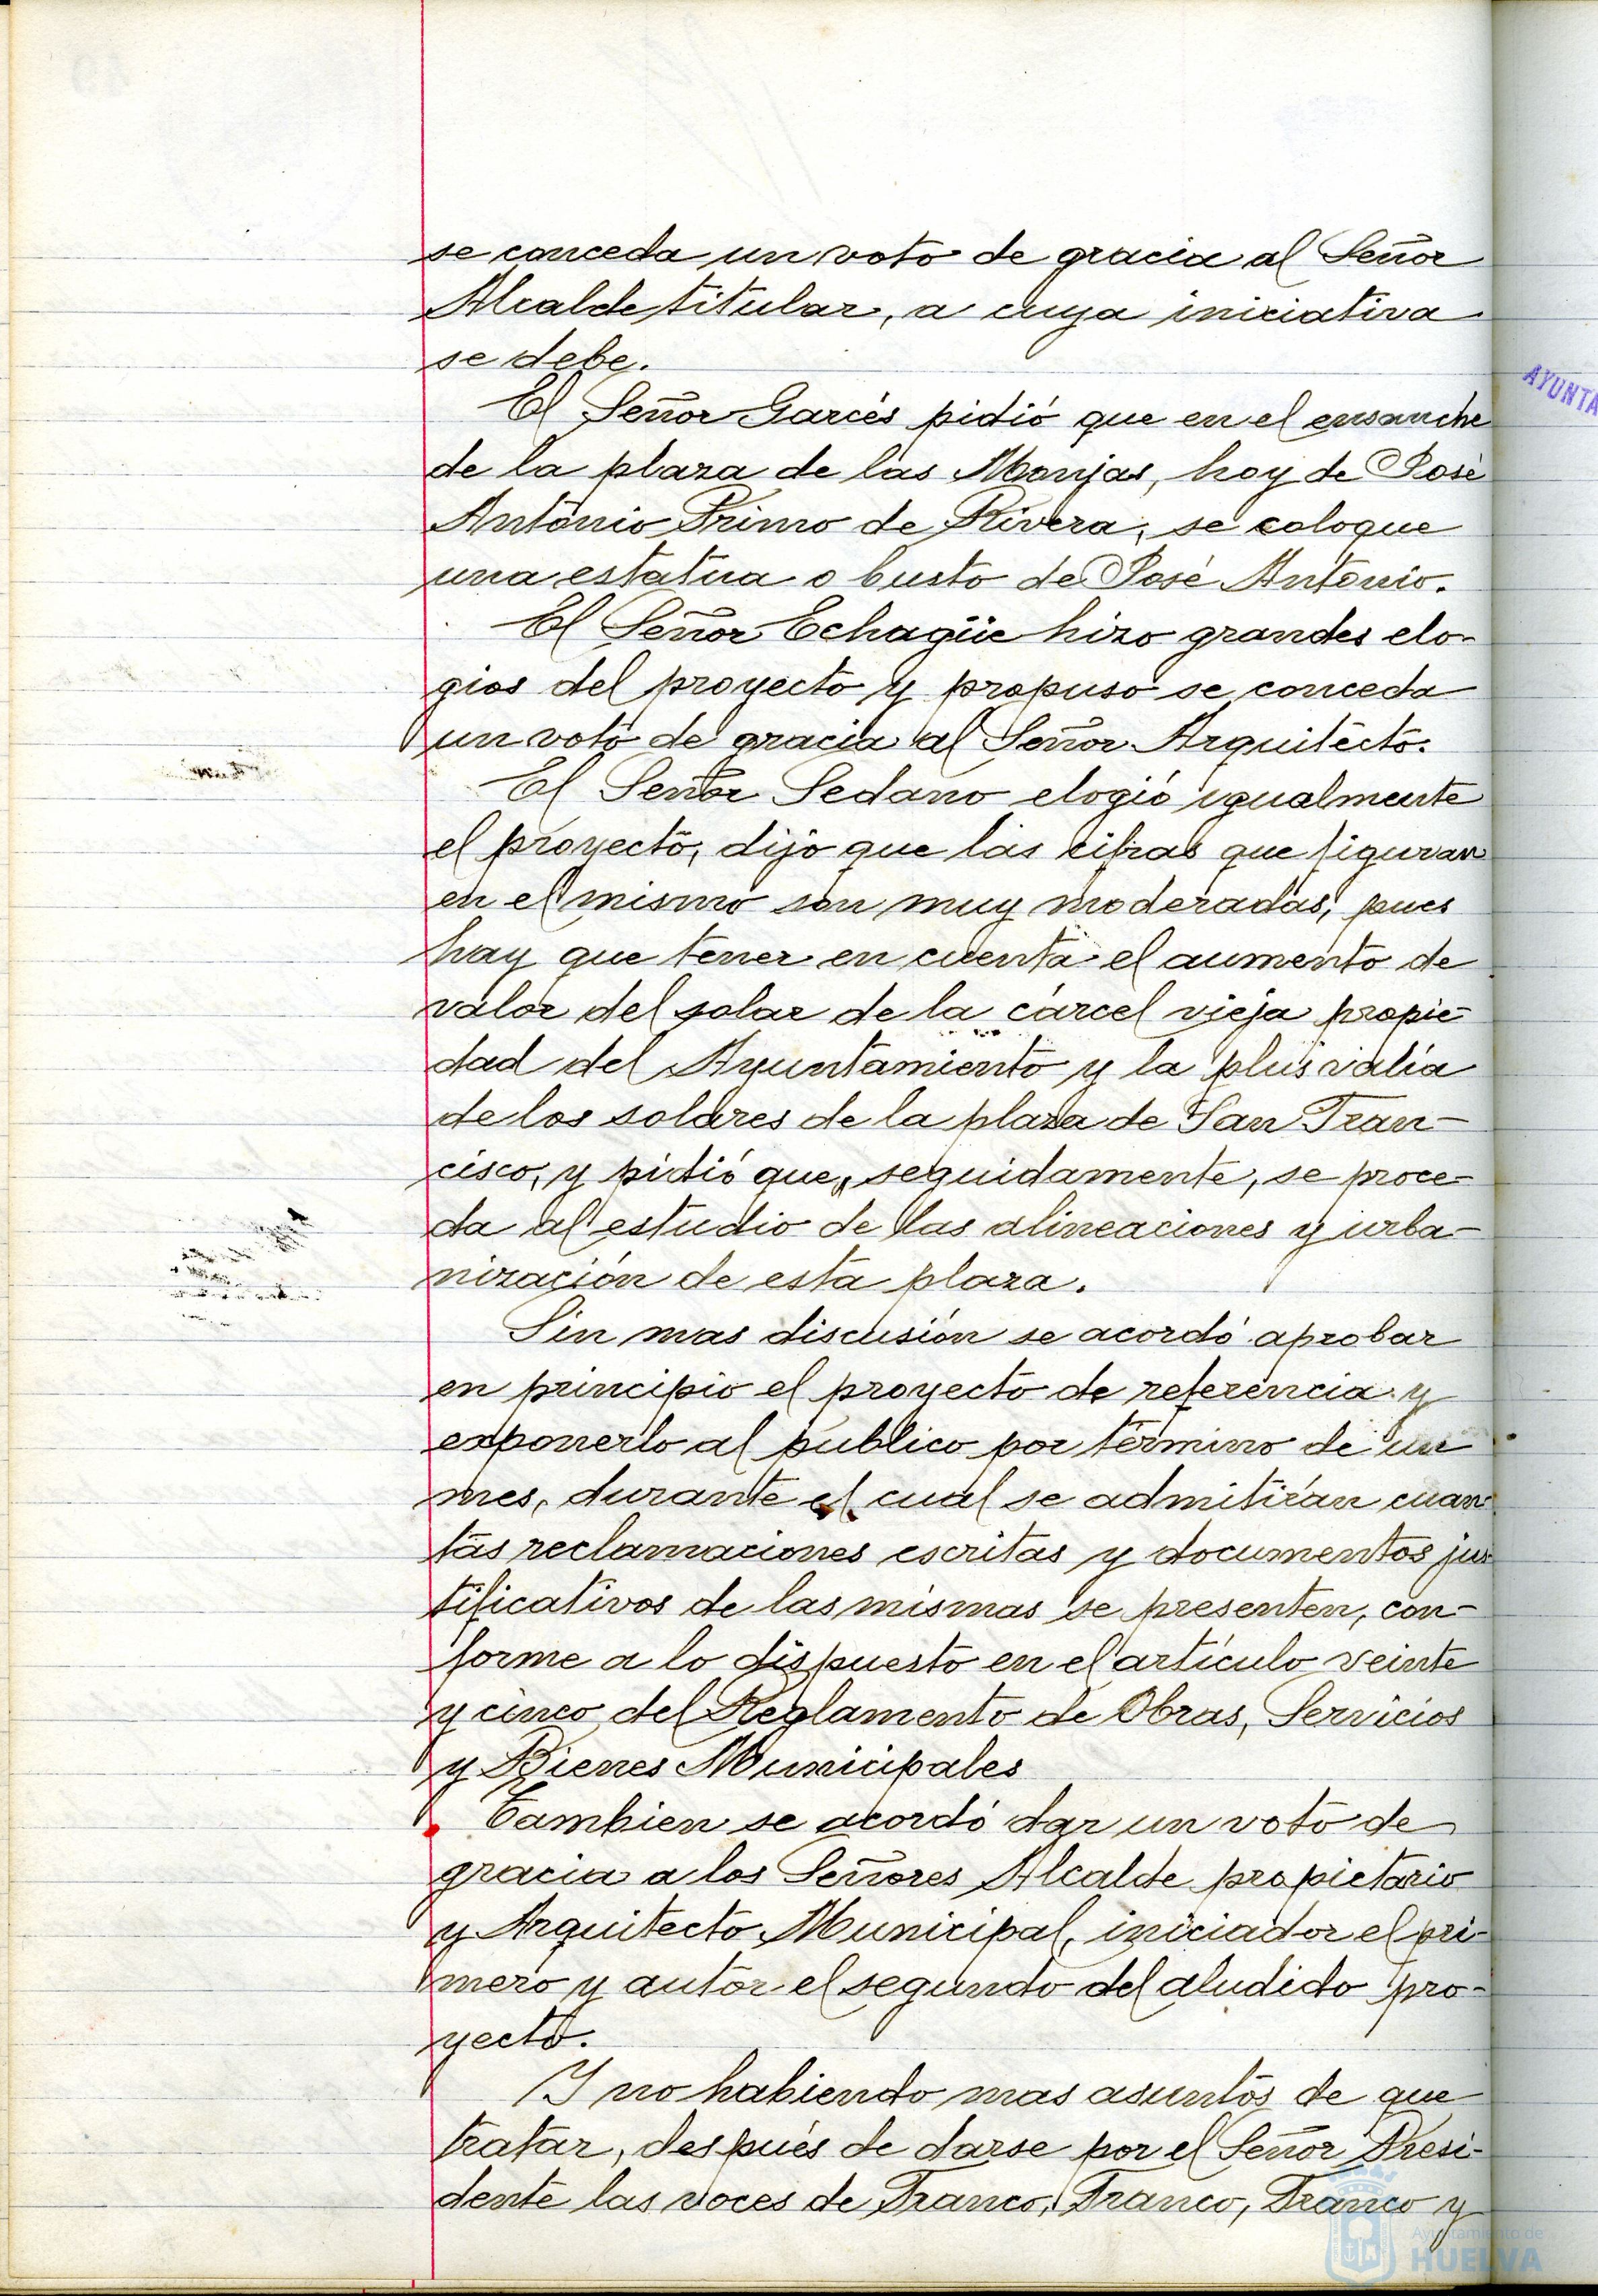 se conceda un voto de gracia al Señor
Alcalde titular, a cuya iniciativa
se debe.
El Señor Garcés pidió que en el ensanche
de la plaza de las Monjas, hoy de José
Antonio Primo de Rivera, se coloque
una estatua o busto de José Antonio.
El Señor Echagüe hizo grandes elo-
gios del proyecto y propuso se conceda
un voto de gracia al Señor Arquitecto.
El Señor Sedano elogió igualmente
el proyecto, dijo que las cifras que figuran
en el mismo son muy moderadas, pues
hay que tener en cuenta el aumento de
valor del solar de la cárcel vieja propie-
dad del Ayuntamiento y la plus valía
de los solares de la plaza de San Fran-
cisco, y pidió que, seguidamente, se proce-
da al estudio de las alineaciones y urba-
nización de esta plaza.
Sin mas discusión se acordó aprobar
en principio el proyecto de referencia y
exponerlo al publico por término de un
mes, durante el cual se admitirán cuan-
tas reclamaciones escritas y documentos jus-
tificativos de las mismas se presenten, con-
forme a lo dispuesto en el artículo veinte
y cinco del Reglamento de Obras, Servicios
y Bienes Municipales
Tambien se acordó dar un voto de
gracia a los Señores Alcalde propietario
y Arquitecto Municipal, iniciador el pri-
mero y autor el segundo del aludido pro-
yecto.
Y no habiendo mas asuntos de que
tratar, después de darse por el Señor Presi-
dente las voces de Franco, Franco, Franco y
AYUNTA
Ayuntamiento de
HUELVA